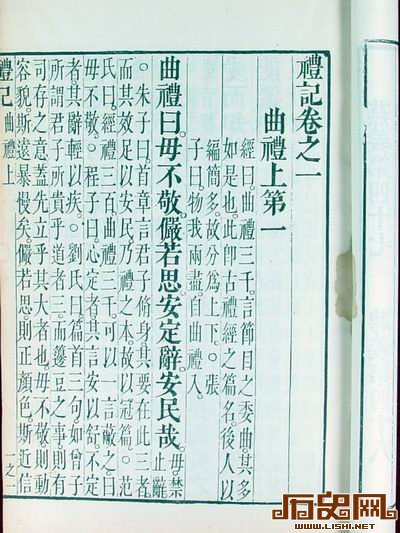 禮記卷之一
曲禮上第一
經曰。曲禮三千。言節目之委曲。其多
如是也。此即古禮經之篇名。後人以
編簡多。故分爲上下。○張
子曰。物我兩盡。自曲禮入。
曲禮曰。毋不敬。儼若思。安定辭。安民哉。毋禁止辭
○朱子曰。首章言君子修身。其要在此三者。
而其效足以安民。乃禮之本。故以冠篇。○范
氏曰。經禮三百。曲禮三千。可以一言蔽之曰
毋不敬。○程子曰。心定者。其言安以舒。不定
者。其辭輕以疾。○劉氏曰。篇首三句。如曾子
所謂君子所貴乎道者三。而籩豆之事。則有
司存之意。蓋先立乎其大者也。毋不敬。則動
容貌。斯遠暴慢矣。儼若思。則正顏色。斯近信
禮記 曲禮上 一之一
历史网
www.LISHI.net